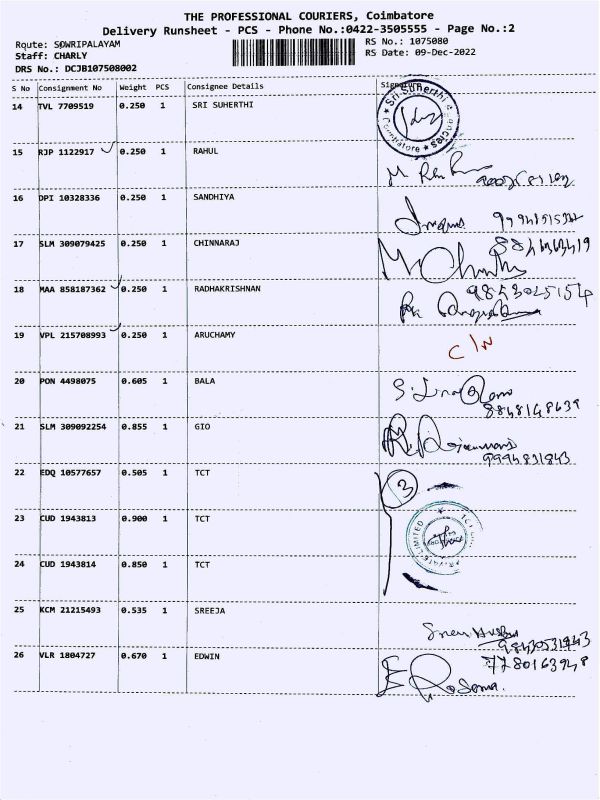 THE PROFESSIONAL COURIERS, Coimbatore
Delivery Runsheet - PCS - Phone No.:0422-3505555 - Page No.:2
Route: SOWRIPALAYAM
RS No.: 1075080
Staff: CHARLY
RS Date: 09-Dec-2022
DRS No.: DCJB107508002
S No Consignment No Weight PCS Consignee Details Signature
14 TVL 7709519 0.250 1 SRI SUHERTHI
Sri Suherthi Agencies
Coimbatore
15 RJP 1122917 0.250 1 RAHUL
16 DPI 10328336 0.250 1 SANDHIYA
17 SLM 309079425 0.250 1 CHINNARAJ
18 MAA 858187362 0.250 1 RADHAKRISHNAN
9843025154
19 VPL 215708993 0.250 1 ARUCHAMY
C/N
20 PON 4498075 0.605 1 BALA
8848148639
21 SLM 309092254 0.855 1 GIO
9994831843
22 EDQ 10577657 0.505 1 TCT
3
23 CUD 1943813 0.900 1 TCT
PRIVATE LIMITED
24 CUD 1943814 0.850 1 TCT
25 KCM 21215493 0.535 1 SREEJA
98430531943
26 VLR 1804727 0.670 1 EDWIN
7780163948